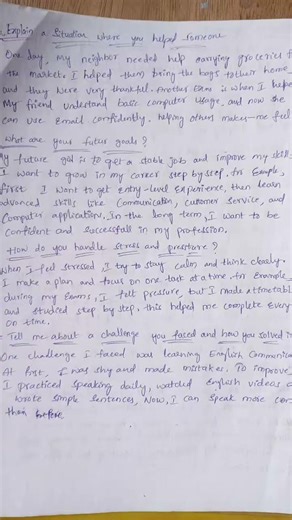 Explain a Situation where you helped someone
One day, My neighbor needed help carrying groceries f
the market. I helped them bring the bags to their home
and they were very thankful. Another time is when I helpe
My friend understand basic computer usage, and now she
can use Email confidently. helping others makes me feel
What are your futur goals?
My future goal is to get a stable job and improve my skills
I want to grow in my career step by step. for Example,
first I want to get Entry-level Experience, then learn
advanced skills like Communication, customer service, and
Computer applications. In the long term, I want to be
confident and successfull in my profession.
How do you handle stress and pressure?
When I feel stressed I try to stay calm and think clearly.
I make a plan and focus on one task at a time. for Example,
during my Exams, I felt pressure, but I made a timetable
and studied step by step. this helped me complete Every
on time.
Tell me about a challenge you faced and how you solved i
One challenge I faced was learning English Communica
At first, I was shy and made mistakes. To improve
I practiced speaking daily, watched English videos a
wrote simple sentences, Now, I can speak more con
than before.